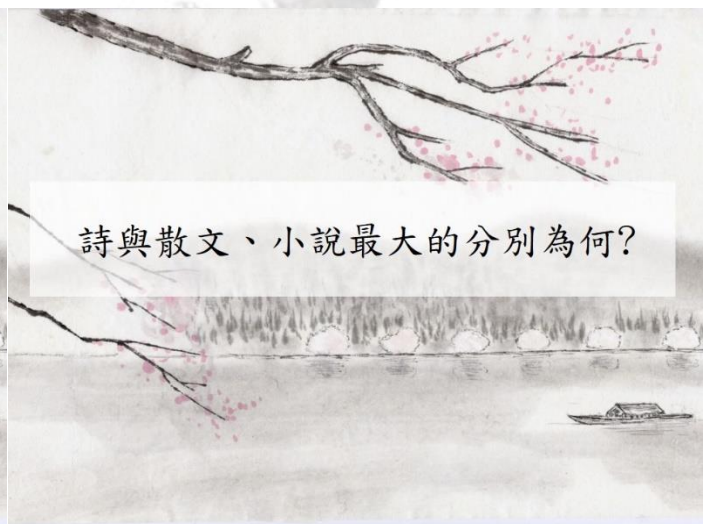 詩與散文、小說最大的分別為何?